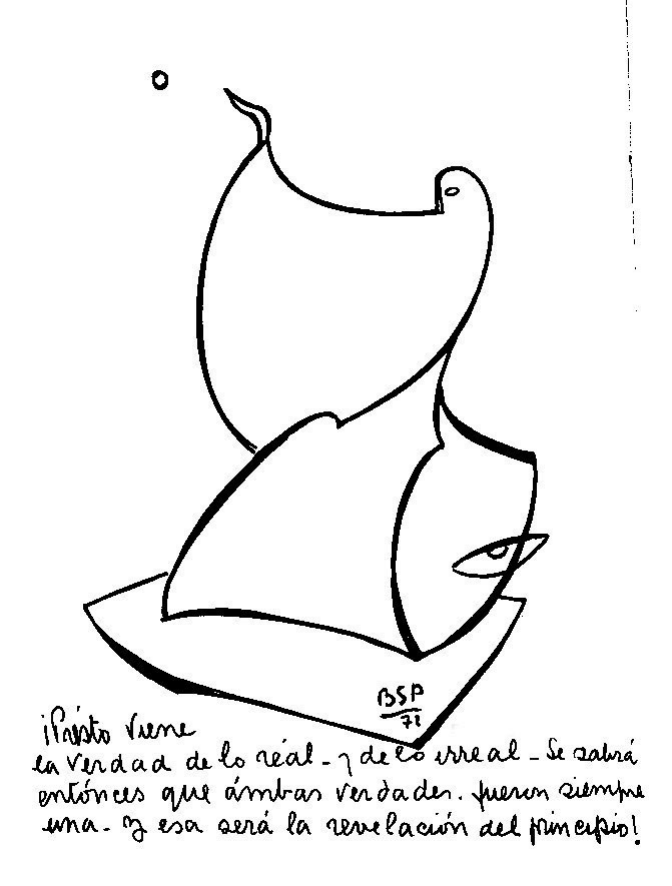 BSP
72
¡Présto viene
la verdad de lo réal - y de lo irreal - Se sabrá
entónces que ámbas verdades. fueron siempre
una - y esa será la revelación del principio!